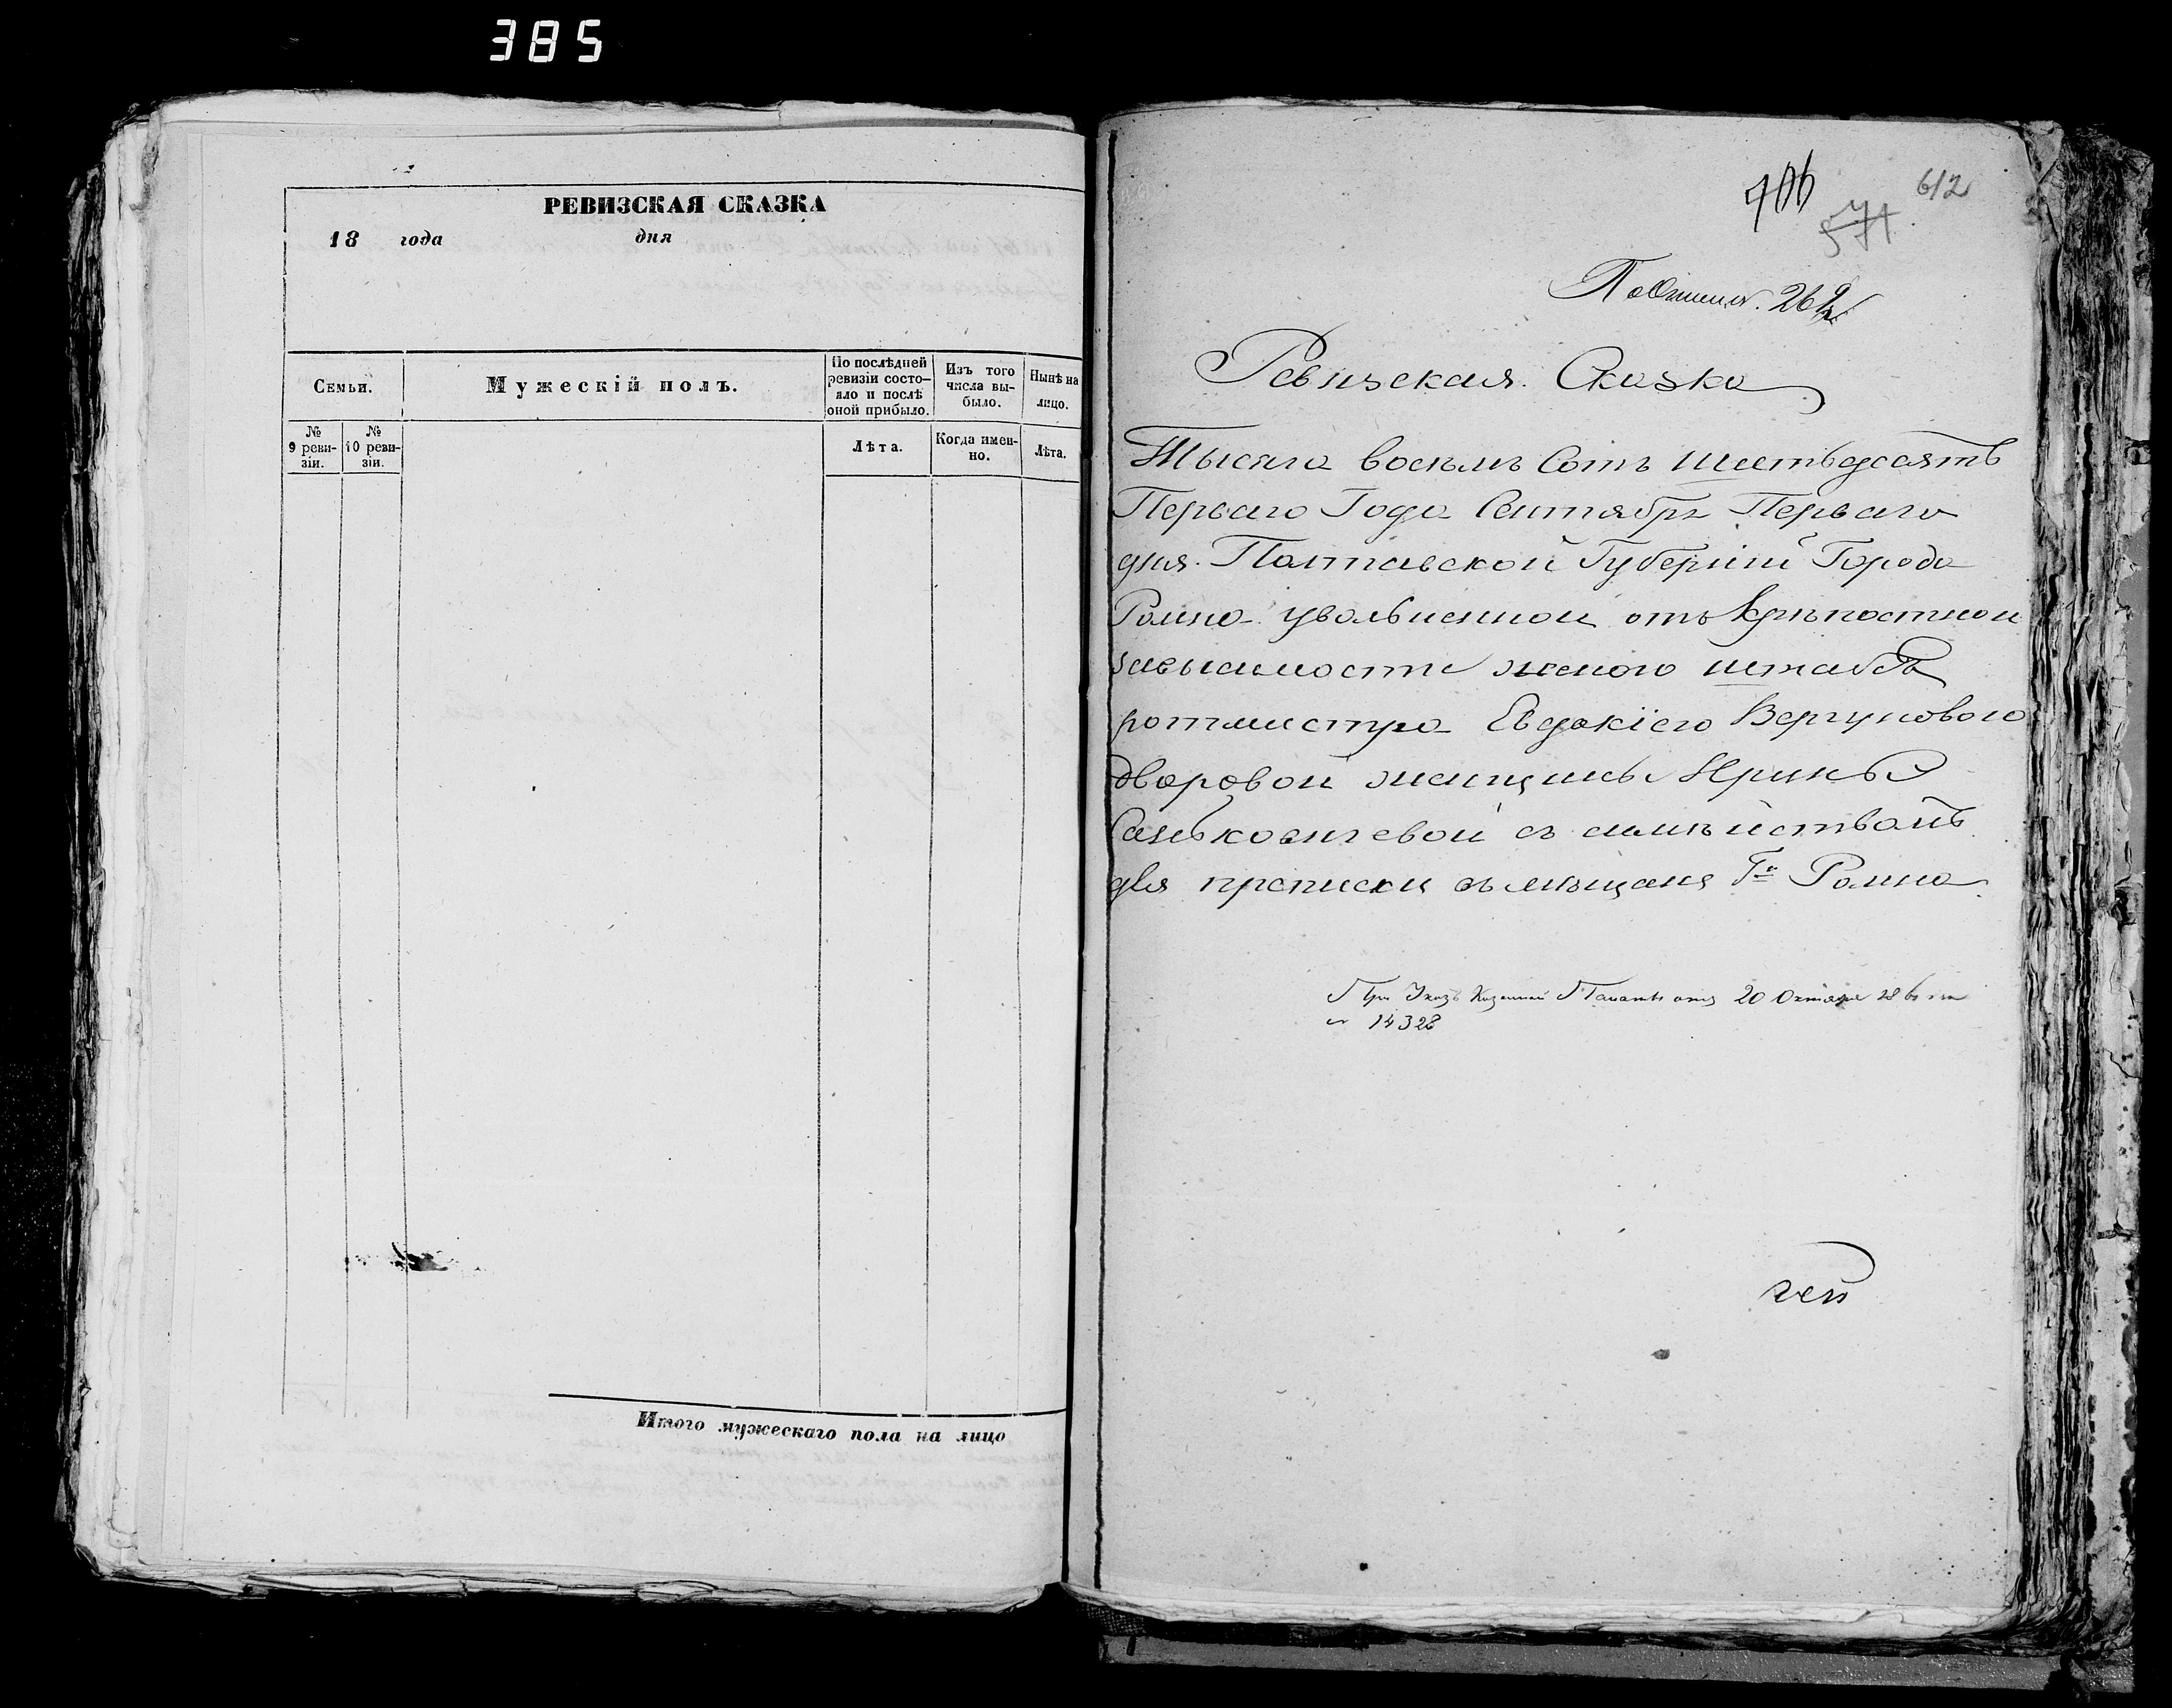 385
РЕВИЗСКАЯ СКАЗКА
18 года дня
Семьи.
Мужескій полъ.
По послѣдней ревизіи состо-
яло и послѣ
оной прибыло.
Изъ того
числа вы-
было.
Нынѣ на
лицо.
№
9 реви-
зіи.
№
10 реви-
зіи.
Лѣта.
Когда имен-
но.
Лѣта.
Итого мужескаго пола на лицо
612
571
Ревизская Сказка
Тысяча восемь Сотъ шестьдесятъ
Перваго Года Сентября Перваго
дня. Полтавской Губерніи Города
Ромна увольненной отъ Крѣпостной
зависимости женою штабъ
ротмистра Евдокіею Вергуновою
дворовой женщины Ирины
съ симѣйствомъ
для приписки въ мѣщане Г. Ромна
При Указѣ Казенной Палаты отъ 20 Октября
14328